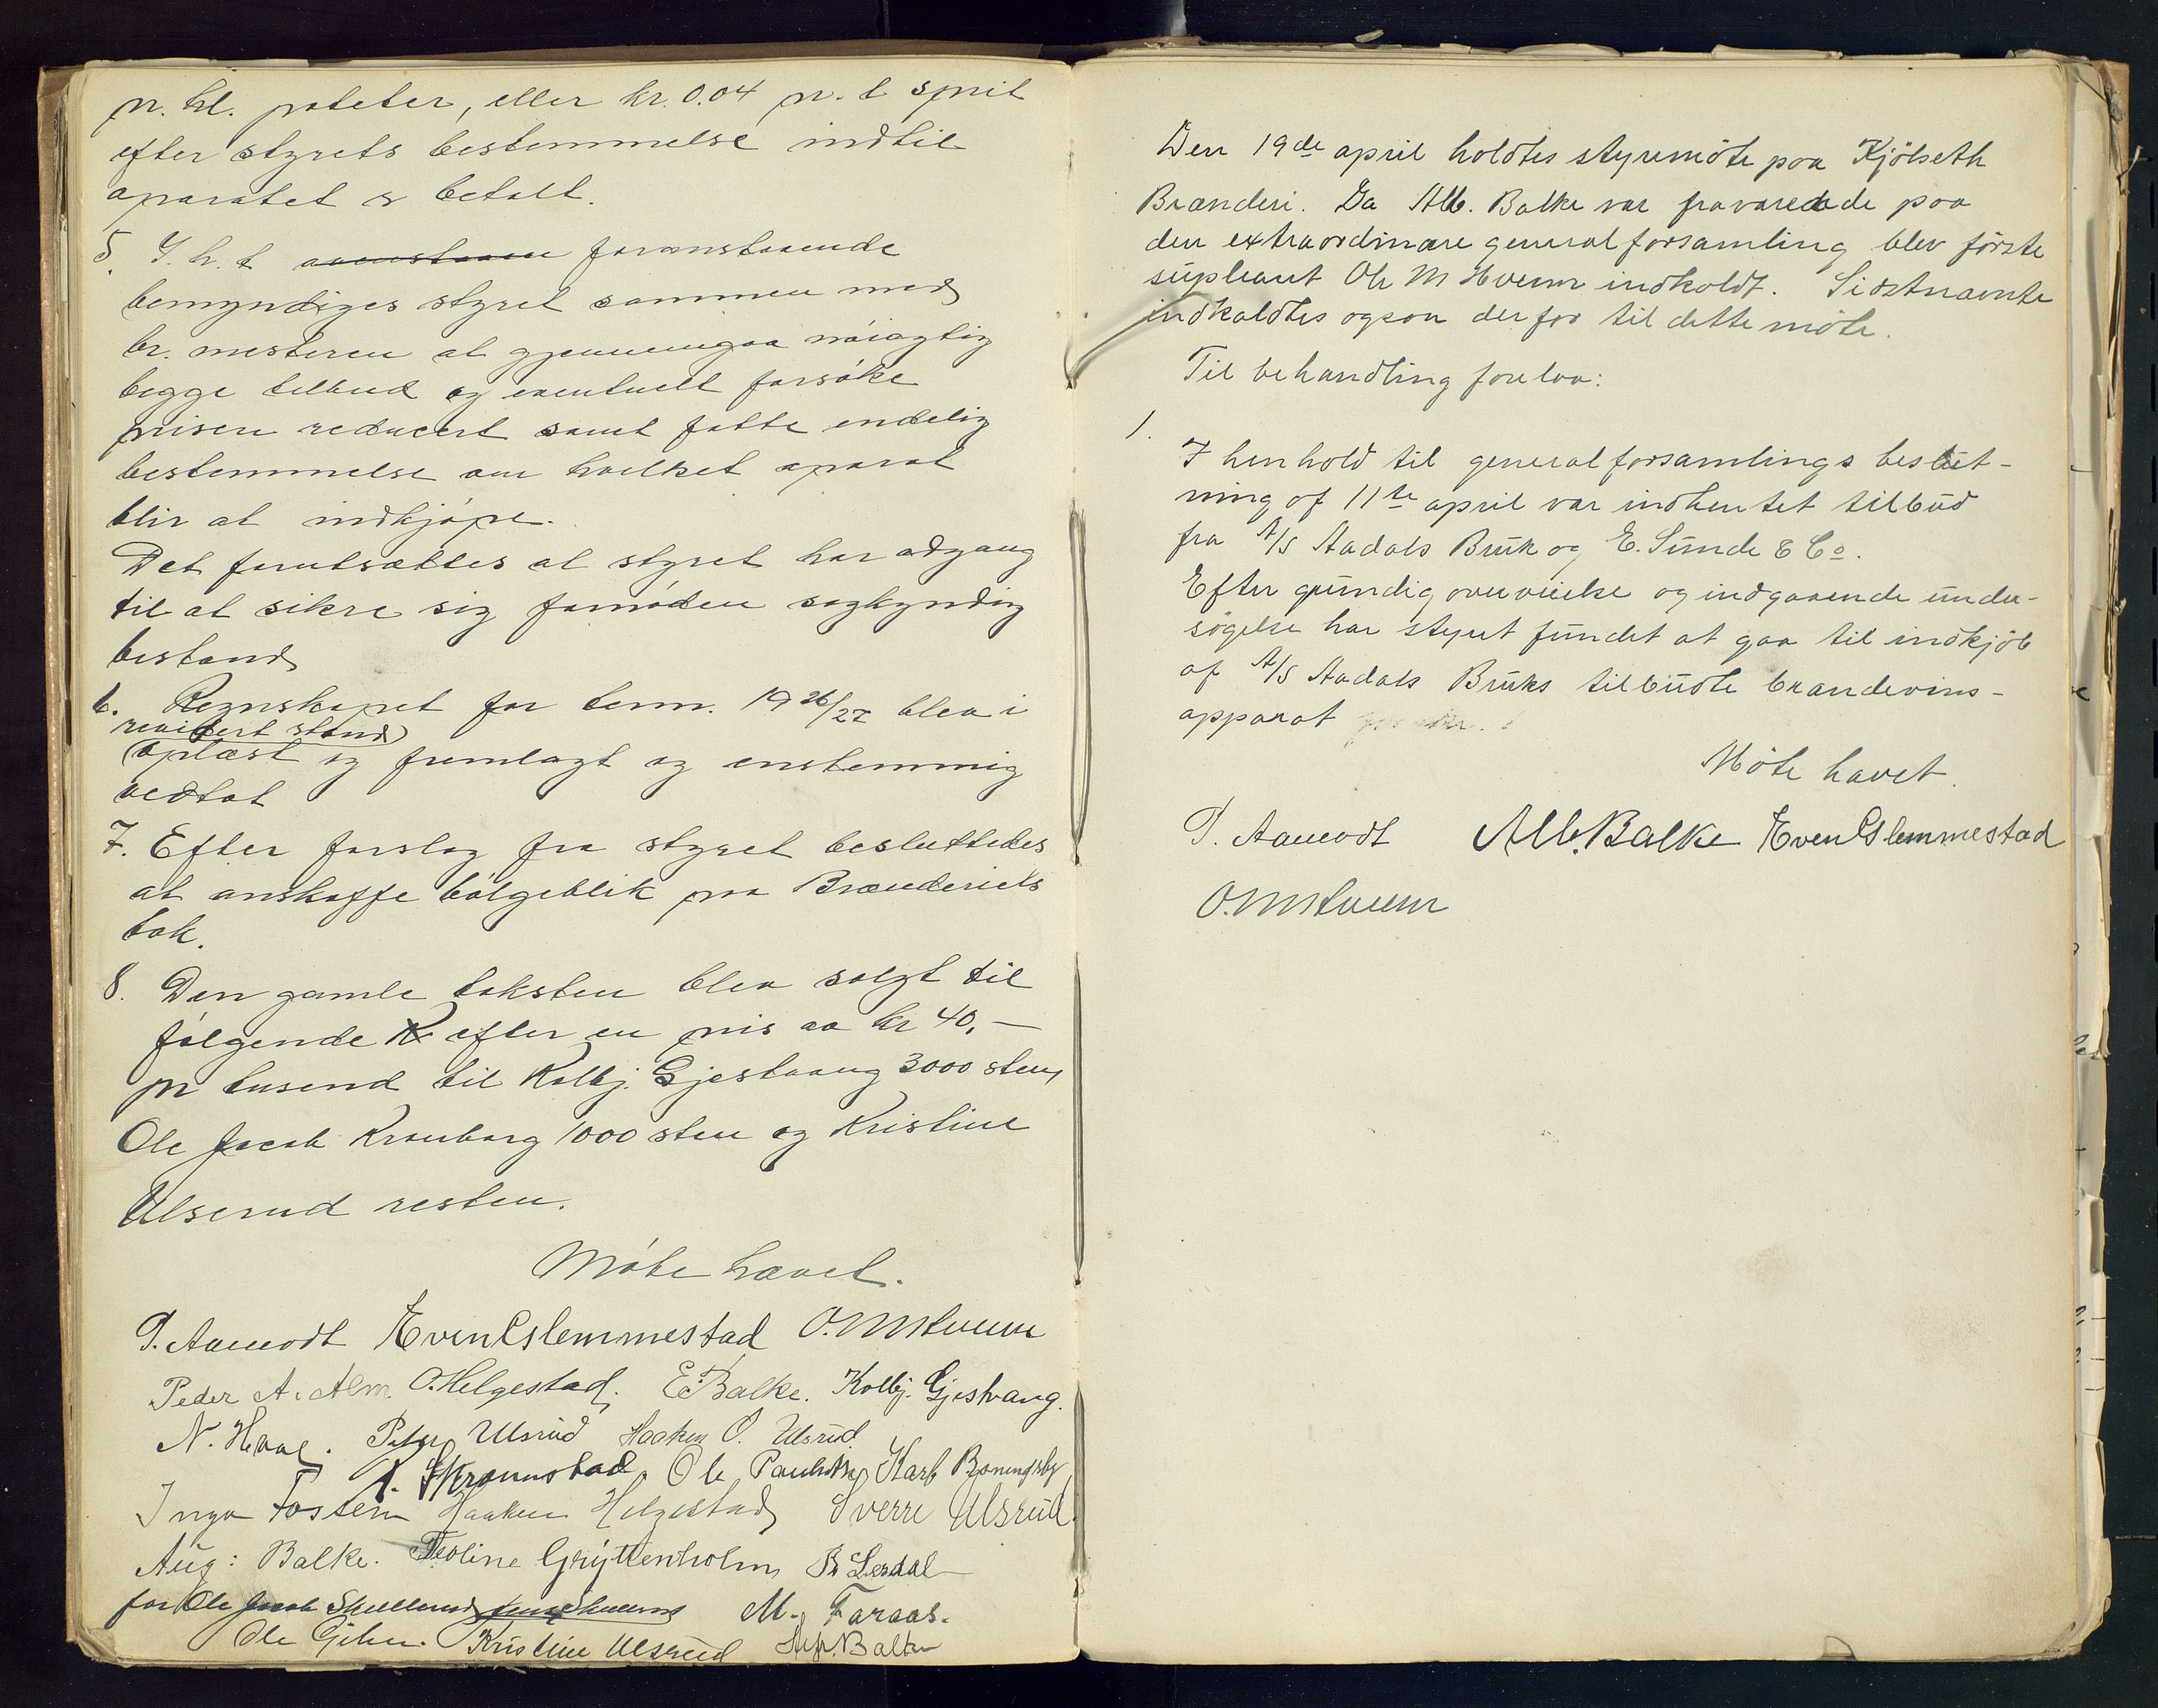 pr. hl. poteter, eller kr. 0.04 pr. l sprit
efter styrets bestemmelse indtil
aparatet er betalt.
5. I. h. t. foranstaaende
bemyndiges styret sammen med
br. mesteren at gjennemgaa nöiagtig
begge tilbud og eventuelt forsöke
prisen reducert samt fatte endelig
bestemmelse om hvilket aparat
blir at indkjöpe.
Det forutsættes at styret har adgang
til at sikre sig fornöden sagkyndig
bistand
6. Regnskapet for term. 1926/27 blev i
revidert stand
oplæst og fremlagt og enstemmig
vedtat
7. Efter forslag fra styret besluttedes
at anskaffe bölgeblik paa Brænderiets
tak.
8. Den gamle taksten blev solgt til
fölgende efter en pris aa kr 40,-
pr tusend til Kolbj. Gjestvang 3000 sten,
Ole Jacob Kronborg 1000 sten og Kristine
Ulserud resten.
Möte hævet.
P. Aamodt Even Eslemmestad O. M Hveem
Peder A. Alm. O. Helgestad. E. Balke. Kolbj. Gjestvang.
N. Hval. Peter Ulsrud Haaken O. Ulsrud.
Ole Paulsen Karl
Inga Fosten Haaken Helgestad Sverre Ulsrud.
Aug: Balke. Teoline Gryttenholm B Lerdal
for Ole Jacob M. Faraas.
Ole Kristine Ulsrud Balke
Den 19de april holdtes styremöte paa Kjölseth
Brænderi. Da Alb. Balke var fraværende paa
den extraordinære generalforsamling blev förste
supleant Ole M Hveem indkaldt. Sidstnævnte
indkaldtes ogsaa derfor til dette möte.
Til behandling forelaa:
1.
I henhold til generalforsamlings beslut-
ning af 11te april var indhentet tilbud
fra A/S Aadals Bruk og E. Sunde & Co.
Efter grundig overveielse og indgaaende under-
sögelse har styret fundet at gaa til indkjöb
af A/S Aadals Bruks tilbudte brændevins-
apparat
Möte hævet.
P. Aamodt Alb. Balke Even Eslemmestad
O. M Hveem